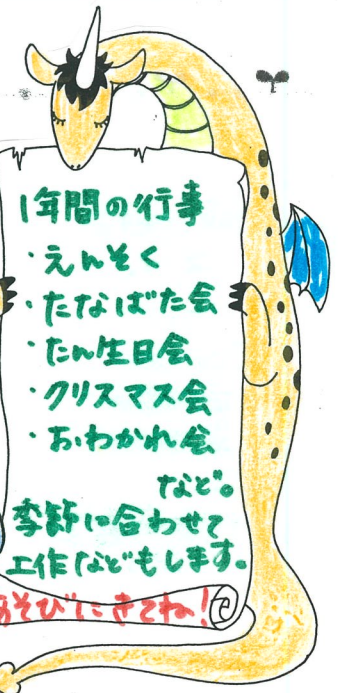 1年間の行事
・えんそく
・たなばた会
・たん生日会
・クリスマス会
・おわかれ会
など。
季節に合わせて
工作などもします。
あそびにきてね!